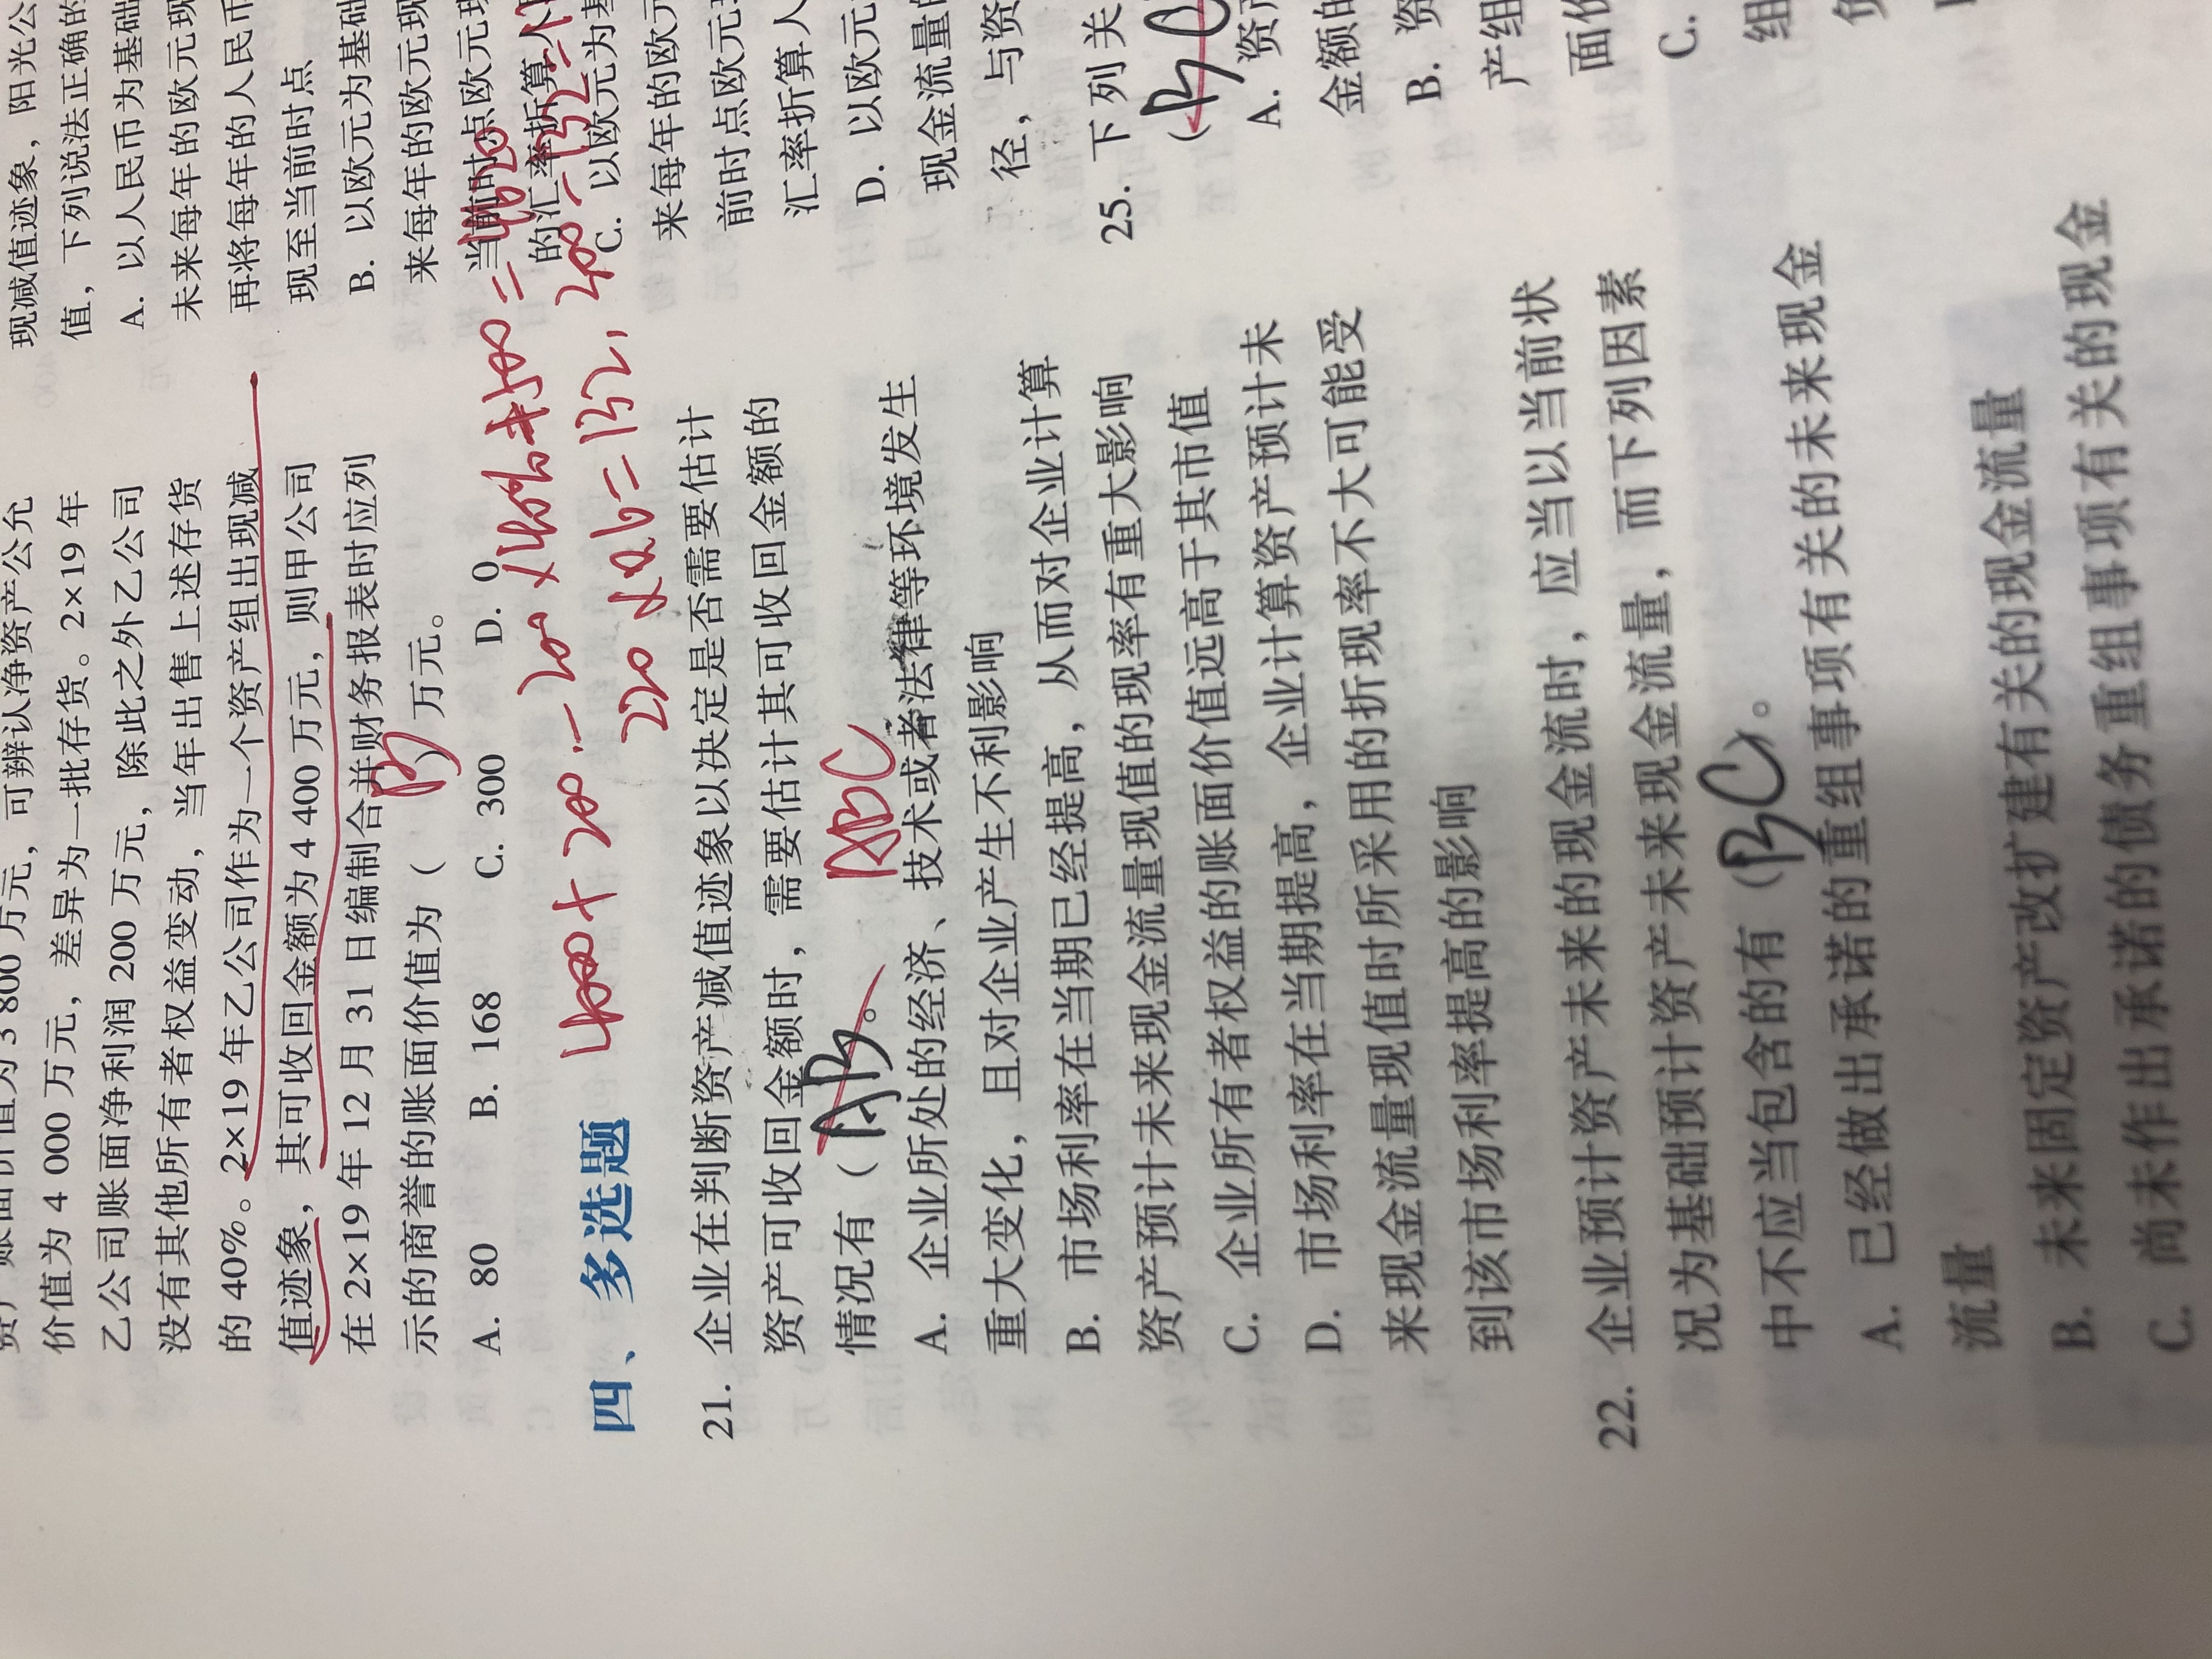 资产账面价值为 3 800 万元，可辨认净资产公允
价值为 4 000 万元，差异为一批存货。2×19 年
乙公司账面净利润 200 万元，除此之外乙公司
没有其他所有者权益变动，当年出售上述存货
的 40%。2×19 年乙公司作为一个资产组出现减
值迹象，其可收回金额为 4 400 万元，则甲公司
在 2×19 年 12 月 31 日编制合并财务报表时应列
示的商誉的账面价值为（ B 万元。
A. 80 B. 168 C. 300 D. 0
220×0.6=132,
四、多选题
21. 企业在判断资产减值迹象以决定是否需要估计
资产可收回金额时，需要估计其可收回金额的
情况有（AB。 ABC
A. 企业所处的经济、技术或者法律等环境发生
重大变化，且对企业产生不利影响
B. 市场利率在当期已经提高，从而对企业计算
资产预计未来现金流量现值的现率有重大影响
C. 企业所有者权益的账面价值远高于其市值
D. 市场利率在当期提高，企业计算资产预计未
来现金流量现值时所采用的折现率不大可能受
到该市场利率提高的影响
22. 企业预计资产未来的现金流时，应当以当前状
况为基础预计资产未来现金流量，而下列因素
中不应当包含的有（BC）。
A. 已经做出承诺的重组事项有关的未来现金
流量
B. 未来固定资产改扩建有关的现金流量
C. 尚未作出承诺的债务重组事项有关的现金
现减值迹象，阳光公
值，下列说法正确的
A. 以人民币为基础
未来每年的欧元现
再将每年的人民币
现至当前时点
B. 以欧元为基础
来每年的欧元现
当前时点欧元现
的汇率折算
C. 以欧元为基
来每年的欧元
前时点欧元
汇率折算人
D. 以欧元
现金流量
径，与资
25. 下列关
（BC
A. 资产
金额的
B. 资
产组
面价
C.
组